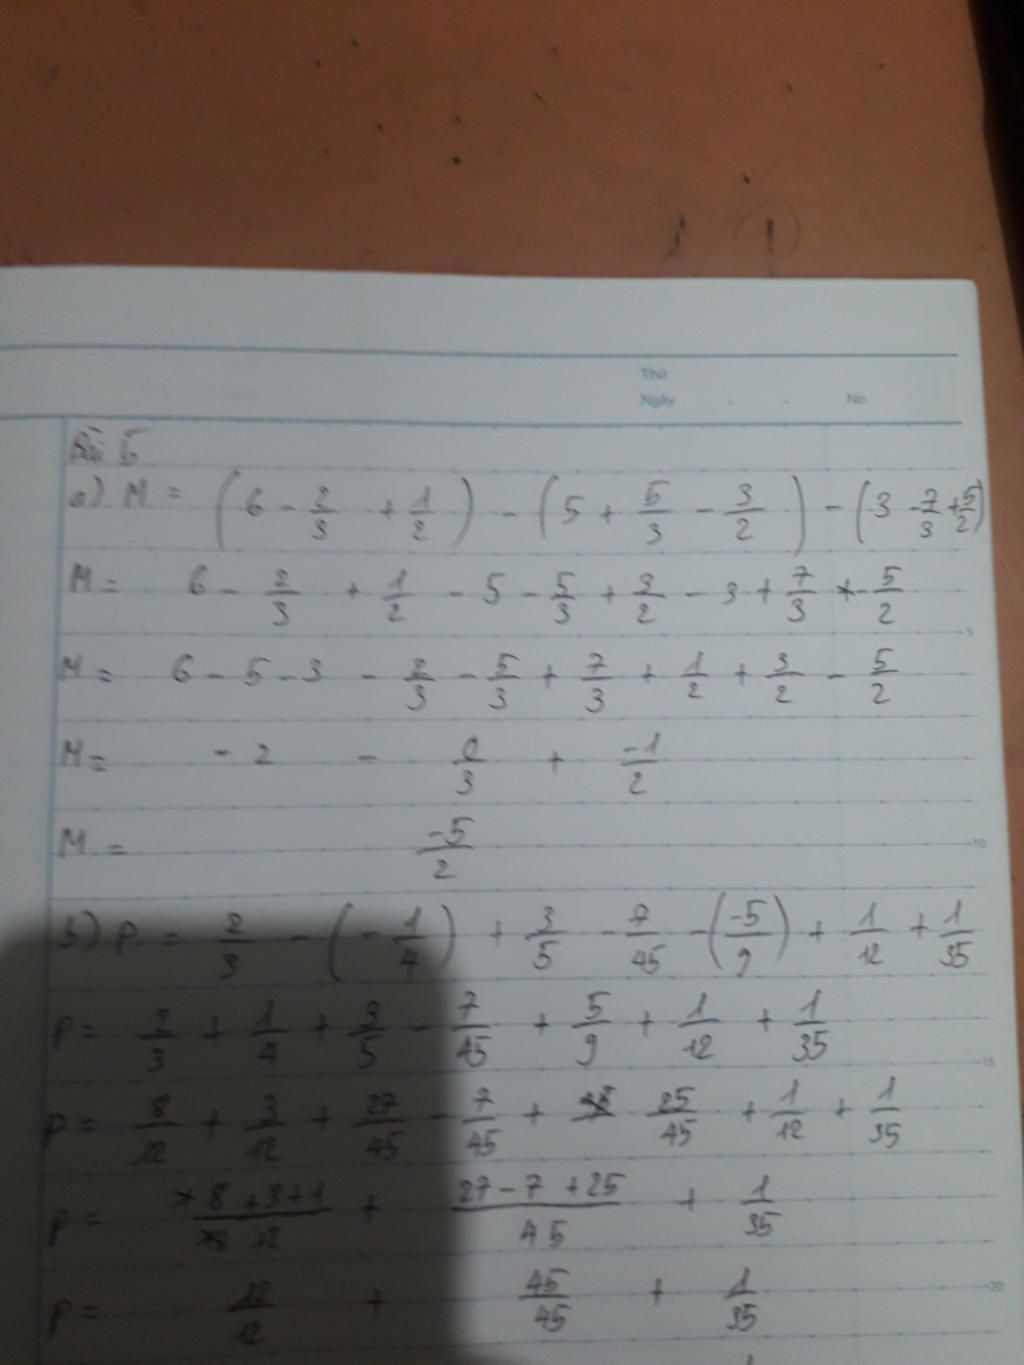 Thứ
Ngày . . No.
Bài 5
a) M = (6 - 2/3 + 1/2) - (5 + 5/3 - 3/2) - (3 - 7/3 + 5/2)
M = 6 - 2/3 + 1/2 - 5 - 5/3 + 3/2 - 3 + 7/3 - 5/2
5
M = 6 - 5 - 3 - 2/3 - 5/3 + 7/3 + 1/2 + 3/2 - 5/2
M = -2 - 0/3 + -1/2
M = -5/2
10
b) P = 2/3 - (-1/4) + 3/5 - 7/45 - (-5/9) + 1/12 + 1/35
P = 2/3 + 1/4 + 3/5 - 7/45 + 5/9 + 1/12 + 1/35
15
P = 8/12 + 3/12 + 27/45 - 7/45 + 25/45 + 1/12 + 1/35
P = 8+3+1/12 + 27-7+25/45 + 1/35
P = 12/12 + 45/45 + 1/35
20